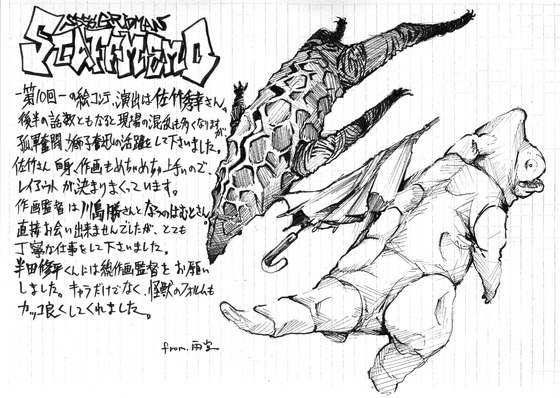 SSSS.GRIDMAN
STAFFMEMO
-第10回-の絵コンテ、演出は佐竹秀幸さん。
後半の話数ともなると現場の混乱も多くなりますが
孤軍奮闘、獅子奮迅の活躍をして下さいました。
佐竹さん自身、作画もめちゃめちゃ上手いので、
レイアウトが決まりまくっています。
作画監督は川島勝さんとなつのはむとさん。
直接お会い出来ませんでしたが、とても
丁寧な仕事をして下さいました。
半田修平くんには総作画監督をお願い
しました。キャラだけでなく、怪獣のフォルムも
カッコ良くしてくれました。
from.雨宮